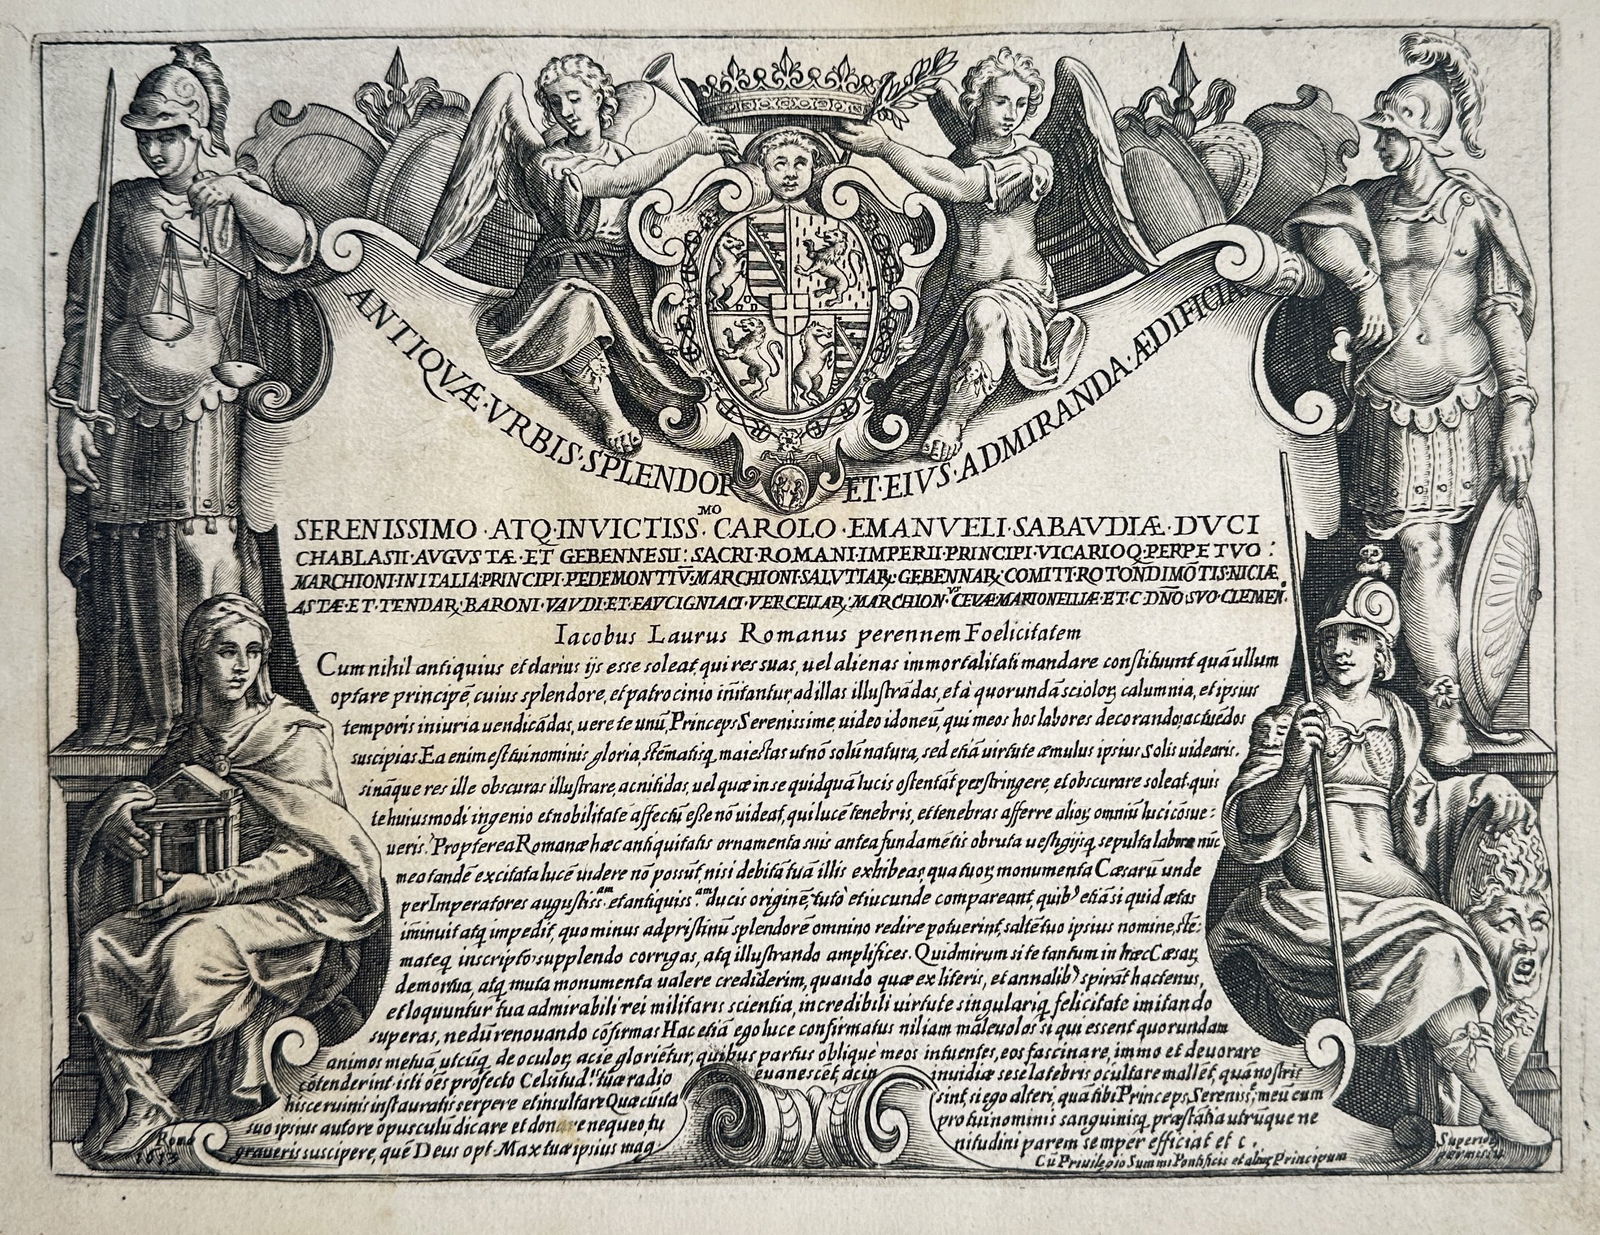 ANTIQVÆ·VRBIS·SPLENDOR ET·EIVS·ADMIRANDA·ÆDIFICIA
SERENISSIMO·ATQ·INVICTISS.MO CAROLO·EMANVELI·SABAVDIÆ·DVCI
CHABLASII·AVGVSTÆ·ET GEBENNESII: SACRI·ROMANI·IMPERII·PRINCIPI·VICARIOQ·PERPETVO:
MARCHIONI·IN ITALIA·PRINCIPI·PEDEMONTIV̄·MARCHIONI·SALVTIAR: GEBENNAR: COMITI·ROTONDIMŌTIS·NICIÆ
ASTÆ·ET·TENDAR: BARONI·VAVDI·ET·FAVCIGNIACI·VERCELLAR: MARCHION.VS CEVÆ·MARIONELLIÆ·ET·C·DÑO·SVO·CLEMEN.
Iacobus Laurus Romanus perennem Foelicitatem
Cum nihil antiquius et clarius ijs esse soleat, qui res suas, uel alienas immortalitati mandare constituunt quā ullum
optare principē, cuius splendore, et patrocinio initantur, ad illas illustrādas, et à quorundā sciolor, calumnia, et ipsius
temporis iniuria uendicādas, uere te unū, Princeps Serenissime, uideo idoneū, qui meos hos labores decorandos, ac tuēdos
suscipias Ea enim est tui nominis gloria, stēmatisq, maiestas ut nō solū natura, sed etiā virtute æmulus ipsius Solis uidearis,
sināque res ille obscuras illustrare, ac nitidas, uel quæ in se quidquā lucis ostentāt perstringere, et obscurare soleat, quis
te huiusmodi ingenio et nobilitate affectū esse nō uideat, qui lucē tenebris, et tenebras afferre alior, omniū luci cōsue:
ueris? Propterea Romanæ hæc antiquitatis ornamenta suis antea fundamētis obruta uestigijsq, sepulta labore nūc
meo tandē excitata lucē uidere nō possūt, nisi debitā tuā illis exhibeas, qua tuor, monumenta Cæsarū unde
per Imperatores augustiss.am et antiquiss.am ducis originē, tuto et iucunde compareant, quib9 etiā si quid ætas
iminuit atq impedit, quo minus ad pristinū splendorē omnino redire potuerint, saltē tuo ipsius nomine, stē:
mateq, inscripto, supplendo corrigas, atq illustrando amplifices. Quid mirum si te tantum in hæc Cæsar,
demortua, atq muta monumenta ualere crediderim, quando quæ ex literis, et annalib9 spirāt hactenus,
et loquuntur tua admirabili rei militaris scientia, incredibili uirtute singulariq, felicitate imitando
superas, nedū renouando cōfirmas Hac etiā ego luce confirmatus nil iam māleuolos si qui essent quorundam
animos metuā, utcūq, de oculor, acie glorientur, quibus partus obliquè meos intuentes, eos fascinare, immo et deuorare
cōtenderint isti oēs profecto Celsitud.is tuæ radio euanescēt, ac in inuidiæ sese latebris ocultare mallēt, quā nostris
hisce ruinis instauratis serpere et insultare Quæ cū ita sint, si ego alteri, quā tibi Princeps Sereniss.e, meū eum
suo ipsius autore opusculū dicare et donare nequeo, tu pro tui nominis sanguinisq, præstātia utrūque ne
graueris suscipere, quē Deus opt. Max tuæ ipsius mag: nitudini parem semper efficiat et c.
Cū Priuilegio Summi Pontificis et alior, Principum
Romæ
1613
Superior
permissu